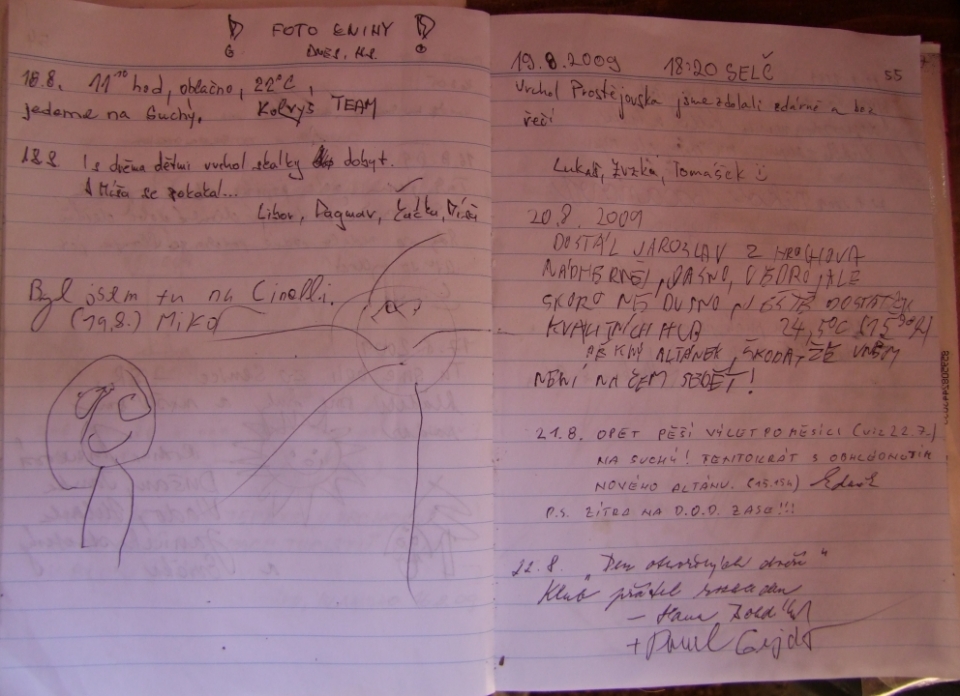 FOTO KNIHY
18.8. 11¹⁰ hod, oblačno, 22°C,
jedeme na Suchý. TEAM
18.8 I s dvěma dětmi vrchol skalky dobyt.
A Míša se pokakal...
Libor, Dagmar,
Byl jsem tu na Cinelli.
(19.8.) Mika
19.8.2009 18:20 SELČ
55
Vrchol Prostějovska jsme zdolali zdárně a bez
řečí
Lukáš, Zuzka, Tomášek
20.8. 2009
DOSTÁL JAROSLAV Z HROCHOVA
NÁDHERNĚ, JASNO, VEDRO, ALE
SKORO NE DUSNO, JEŠTĚ DOSTATEK
KVALITNÍCH HUB 24,5°C
PĚKNÝ ALTÁNEK, ŠKODA, ŽE V NĚM
NENÍ NA ČEM SEDĚT!
21.8. OPĚT PĚŠÍ VÝLET PO MĚSÍCI (VIZ 22.7.)
NA SUCHÝ! TENTOKRÁT S OBHLÉDNUTÍM
NOVÉHO ALTÁNU.
P.S. ZÍTRA NA D.O.D. ZASE!!!
22.8. "Den otevřených dveří"
Klub přátel
- Hana
+ Pavel